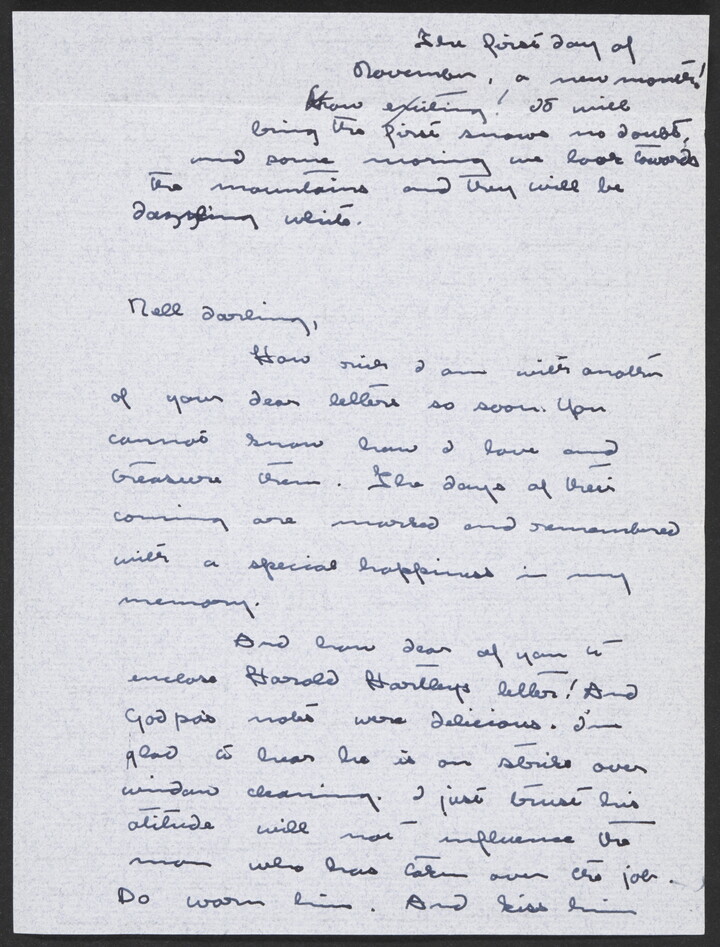 The first day of
November, a new month!
How exiting! It will
bring the first snows no doubt,
and some moring we look towards
the mountains and they will be
dazzling white.
Nell darling,
How rich I am with another
of your dear letters so soon. You
cannot know how I love and
treasure them. The days of their
coming are marked and remembered
with a special happiness in my
memory.
And how dear of you to
enclose Harold Hartleys letter! And
Godpa's notes were delicious. I'm
glad to hear he is on strike over
window cleaning. I just trust his
atitude will not influence the
man who has taken over the job.
Do warn him. And kiss him